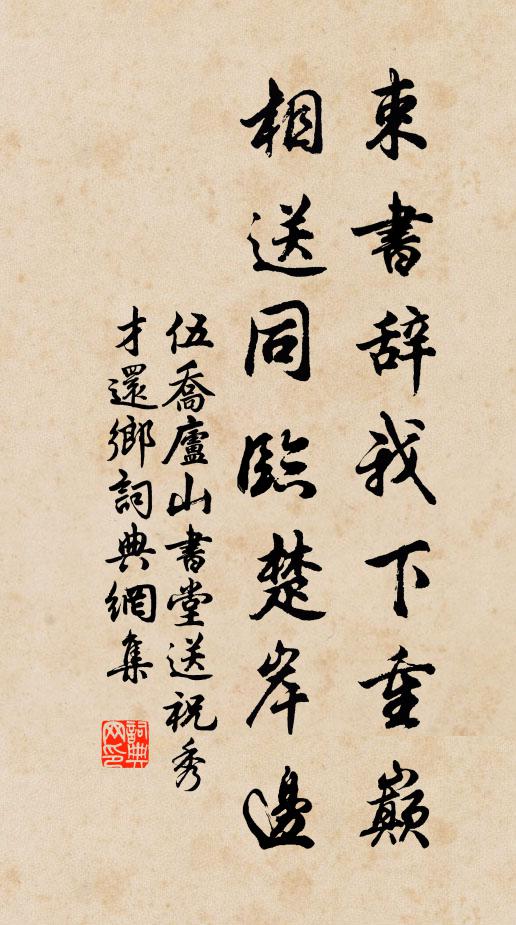 束書辞我下重巔
相送同臨楚岸邊
伍喬廬山書堂送祝秀
才還鄉詞典網集
詞典网印